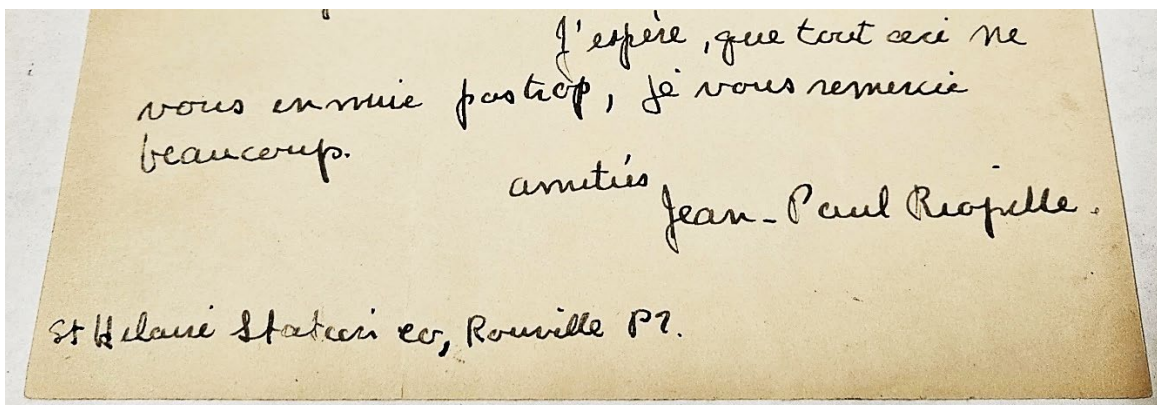 J'espère, que tout ceci ne
vous ennuie pas trop, je vous remercie
beaucoup.
amitiés
Jean-Paul Riopelle.
St Hilaire Station co, Rouville PQ.